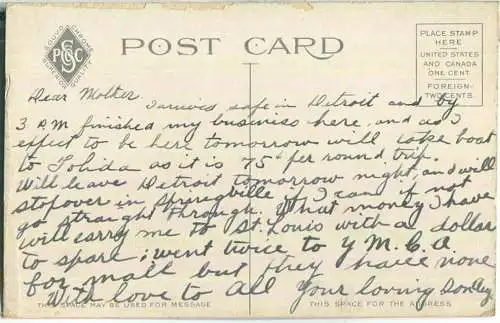 POST CARD
PLACE STAMP
HERE
UNITED STATES
AND CANADA
ONE CENT
FOREIGN-
TWO CENTS.
Dear Mother
I arrived safe in Detroit and by
3 P.M. finished my business here, and as I
expect to be here tomorrow will take boat
to Tolida as it is 75¢ per round trip.
Will leave Detroit tomorrow night, and will
stop over in Springville if I can if not
go straight through. What money I have
will carry me to St. Louis with a dollar
to spare; went twice to Y M. C. A.
for mail but they have none
With love to All Your loving
THIS SPACE MAY BE USED FOR MESSAGE
THIS SPACE FOR THE ADDRESS